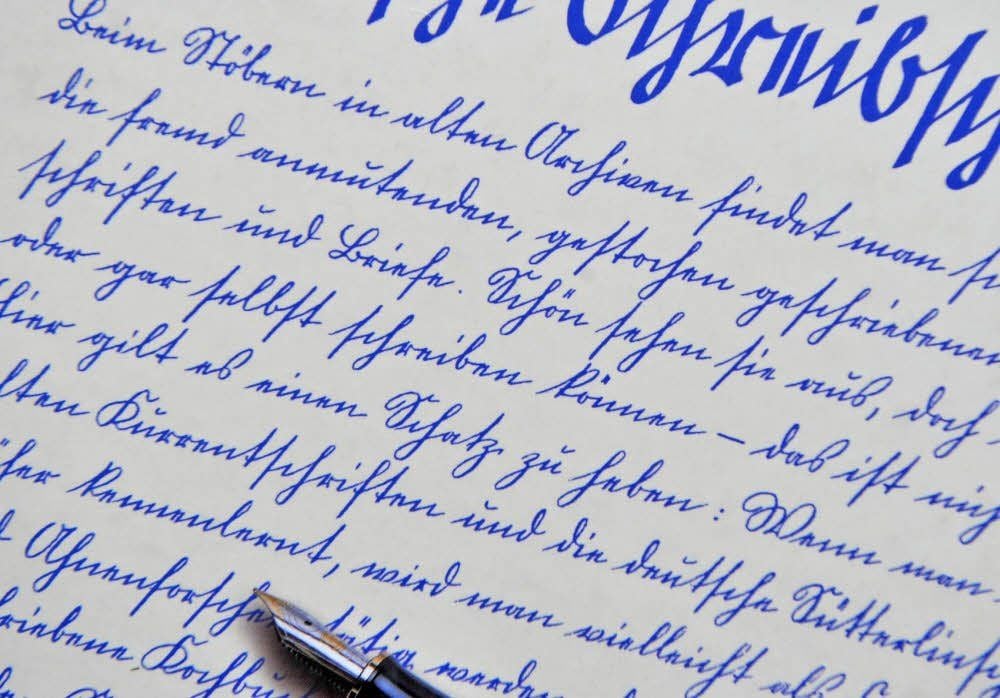 Schreibsch
Beim Stöbern in alten Archiven findet man
die fremd anmutenden, gestochen geschriebenen
schriften und Briefe. Schön sehen sie aus, doch
oder gar selbst schreiben können – das ist nich
hier gilt es einen Schatz zu heben: Wenn man
lten Kurrentschriften und die deutsche Sütterlinsch
her kennenlernt, wird man vielleicht als
Ahnenforsche tätig werden
riebene Kochbu